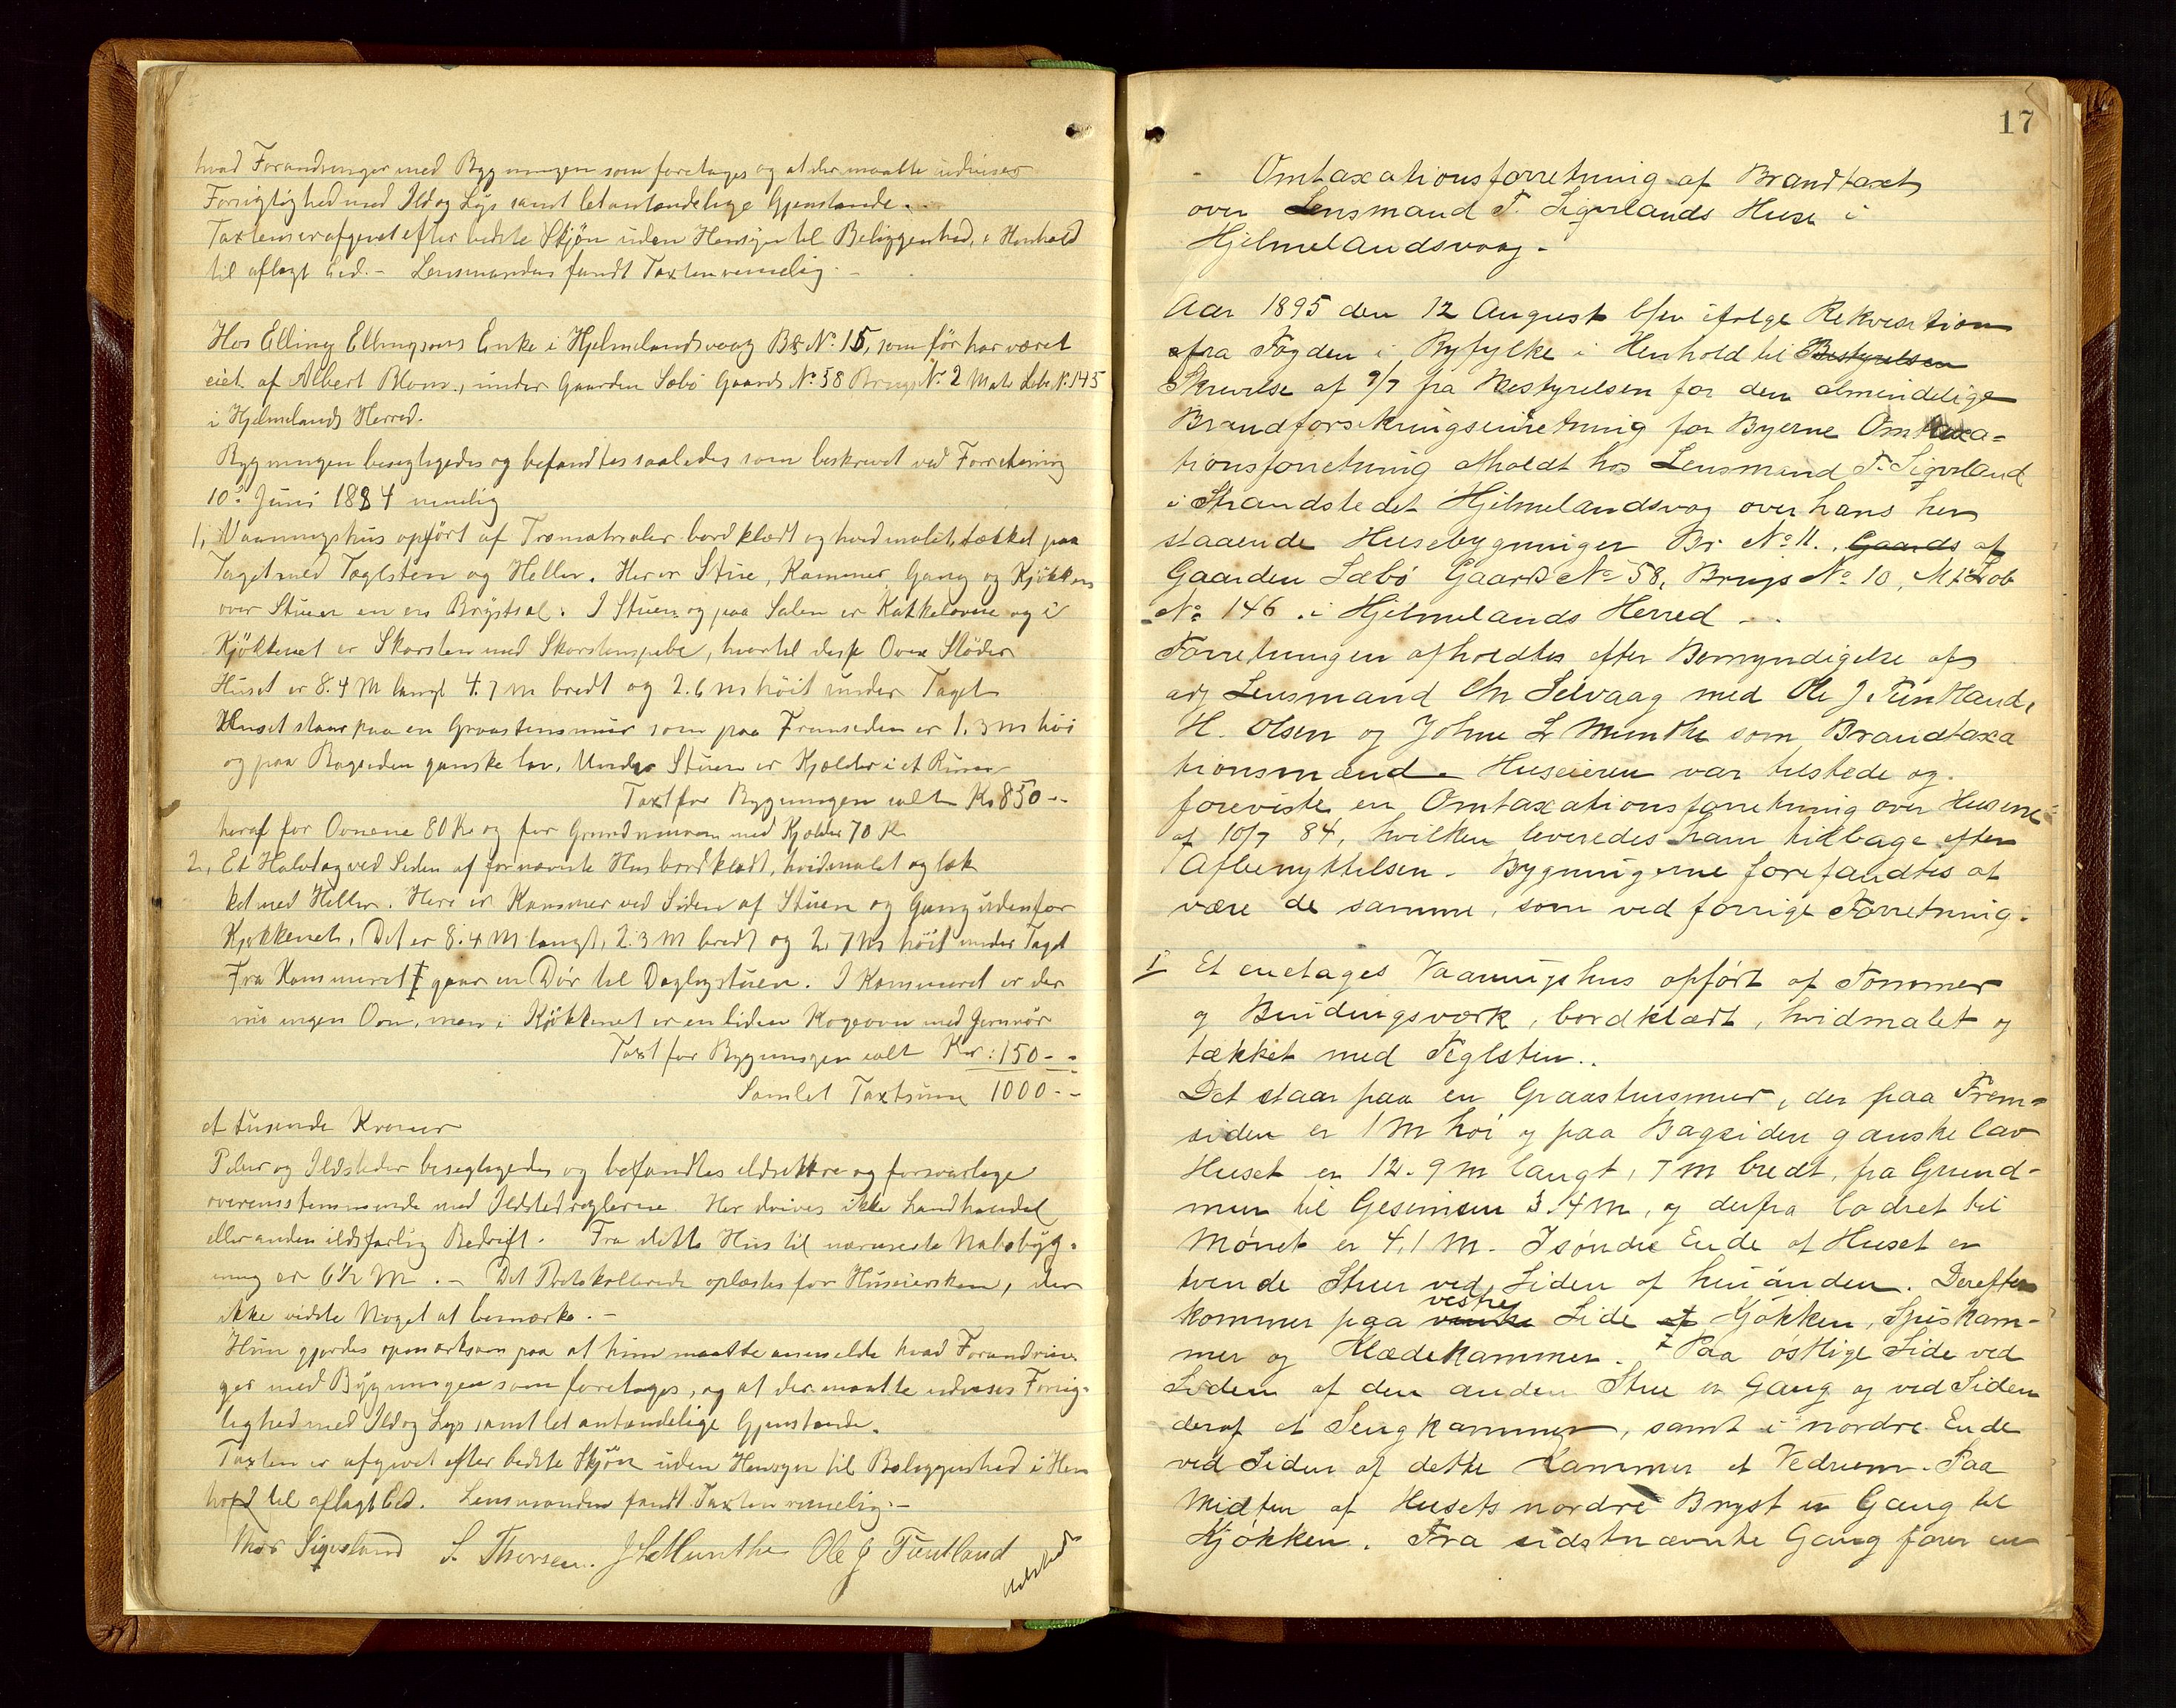 hvad Forandringer med Bygningen som foretages og at der maatte udvises
Forsigtighed med Ild og Lys samt letantændelige Gjenstande.
Taxten er afgivet efter bedste Skjön uden Hensyn til Beliggenhed, i Henhold
til aflagt Eed. - Lensmanden fandt Taxten rimelig. -
Hos Elling Ellingsens Enke i Hjelmelandsvaag Br No. 15, som för har været
eiet af Albert Blom, under Gaarden Sæbö Gaards No. 58 Brugs No. 2 Mats Løbe No. 145
i Hjelmelands Herred.
Bygningen besigtigedes og befandtes saaledes som beskrevet ved Forretning
10. Juni 1884 nemlig
1, Vaaningshus opfört af Træmatrialer bordklædt og hvidmalet, tækket paa
Taget med Taglsten og Heller. Her er Stue, Kammer, Gang og Kjökken
over Stuen en en Brystsal. I Stuen og paa Salen er Kakkelovne og i
Kjökkenet er Skorsten med Skorstenspibe, hvortil disse Ovne Stöder
Huset er 8.4 M langt 4.7 m bredt og 2.6 m höit under Taget
Huset staar paa en Graastensmur som paa Fremsiden er 1.3 m höi
og paa Bagsiden ganske lav. Under Stuen er Kjælder i et Rum
Taxt for Bygningen ialt Kr 850 --
heraf for Ovnene 80 Kr og for Grundmuren med Kjælder 70 Kr
2, Et Halvtag ved Siden af fornævnte Hus bordklædt, hvidmalet og tæk
ket med Heller. Here er Kammer ved Siden af Stuen og Gang udenfor
Kjøkkenet. Det er 8.4 M langt, 2.3 M bredt og 2,7 M höit under Taget
Fra Kammeret gaar en Dör til Daglugstuen. I Kammeret er der
nu ingen Ovn, men i Kjökkenet er en liden Kogeovn med Jernrör
Taxt for Bygningen ialt Kr: 150 - -
Samlet Taxtsum 1000 - -
et tusende Kroner
Piber og Ildsteder besigtigedes og befandtes ildsikkre og forsvarlige
overensstemmende med Ildstedreglerne. Her drives ikke Landhandel
eller anden ildsfarlig Bedrift. Fra dette Hus til nærmeste Nabobyg-
ning er 6½ M. - Det Protokollerede oplæstes for Huseiersken, der
ikke vidste Noget at bemærke. -
Hun gjordes opmærksom paa at hun maatte anmelde hvad Forandrin-
ger med Bygningen som foretages, og at der maatte udvises Forsig-
tighed med Ild og Lys samt let antændelige Gjenstande.
Taxten er afgivet efter bedste Skjön uden Hensyn til Beliggenhed i Hen
hold til aflagt Eed. Lensmanden fandt Taxten rimelig. -
Thor Sigvsland S. Thorsen. J L Munthe Ole J Tuntland
17
Omtaxationsforretning af Brandtaxt
over Lensmand T. Sigvslands Huse i
Hjelmelandsvaag -
Aar 1895 den 12 August blev ifølge Rekvisition
fra Fogden i Ryfylke i Henhold til Bestyrelsen
Skrivelse af 9/7 fra Bestyrelsen for den almindelige
Brandforsikringsindretning for Byerne Omtaxa-
tionsforretning afholdt hos Lensmand T. Sigvsland
i Strandstedet Hjelmelandsvag over hans her
staaende Husebygninger Br. No 11. Gaards af
Gaarden Sæbö Gaards No 58, Brugs No 10, M. Løb
No 146 i Hjelmelands Herred - .
Forretningen afholdtes efter Bemyndigelse af
adj Lensmand Chr Selvaag med Ole J. Tuntland,
H. Olsen og Johne L Munthe som Brandtaxa
tionsmænd. Huseieren var tilstede og
foreviste en Omtaxationsforretning over Husene
af 10/7 84, hvilken leveredes ham tilbage efter
Afbenyttelsen. Bygningerne forefandtes at
være de samme, som ved forrige Forretning.
I Et enetages Vaaningshus opfört af Tømmer
og Bindingsværk, bordklædt, hvidmalet og
tækket med Teglsten..
Det staar paa en Graastensmur, der paa Frem-
siden er 1 M höi og paa Bagsiden ganske lav
Huset er 12.9 m langt, 7 m bredt, fra Grund-
mur til Gesimsen 3.4 m, og derfra lodret til
Mønet er 4,1 M. I söndre Ende af Huset er
tvende Stuer ved Siden af hinanden. Derefter
kommer paa vestre Side et Kjökken, Spiskam-
mer og Klædekammer. Paa østlige Side ved
Siden af den anden Stue er Gang og ved Siden
deraf et Sengkammer, samt i nordre Ende
ved Siden af dette Kammer et Vedrum. Paa
Midten af Husets nordre Bryst en Gang til
Kjökken. Fra sidstnævnte Gang förer en